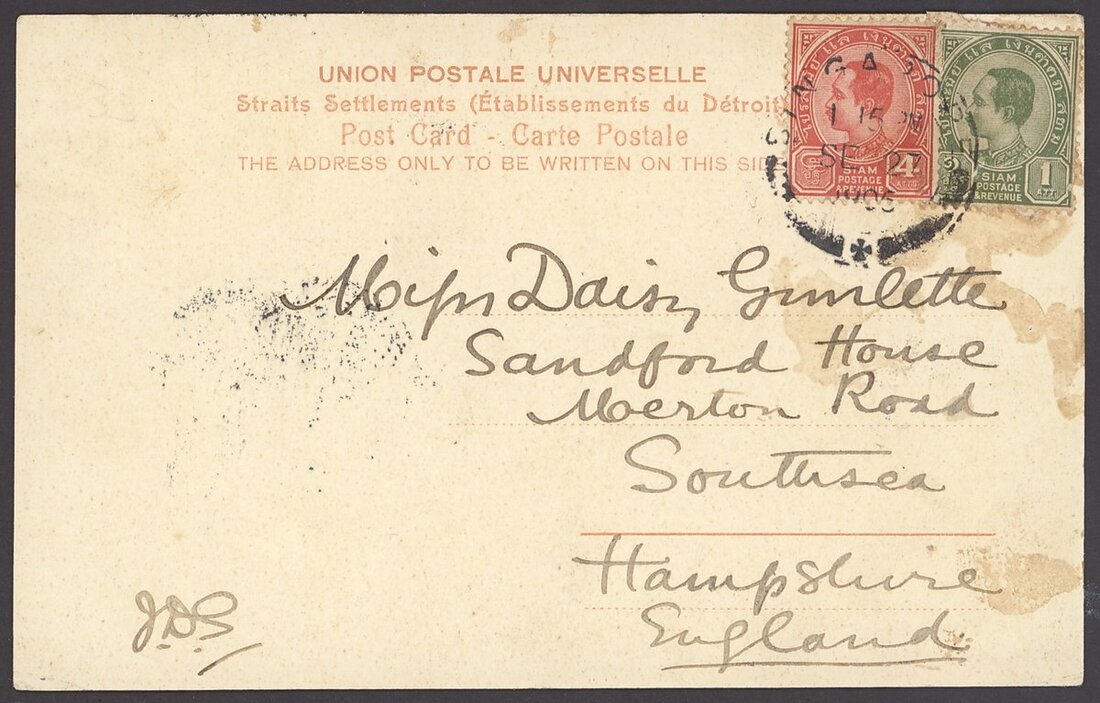 UNION POSTALE UNIVERSELLE
Straits Settlements (Établissements du Détroit)
Post Card - Carte Postale
THE ADDRESS ONLY TO BE WRITTEN ON THIS SI
SINGAPO
1 15 PM
SE 27
1905
SIAM
POSTAGE
& REVENUE
4
ATTS
SIAM
POSTAGE
& REVENUE
1
ATT
Miss Daisy Gimlette
Sandford House
Merton Road
Southsea
Hampshire
England
J.D.G.